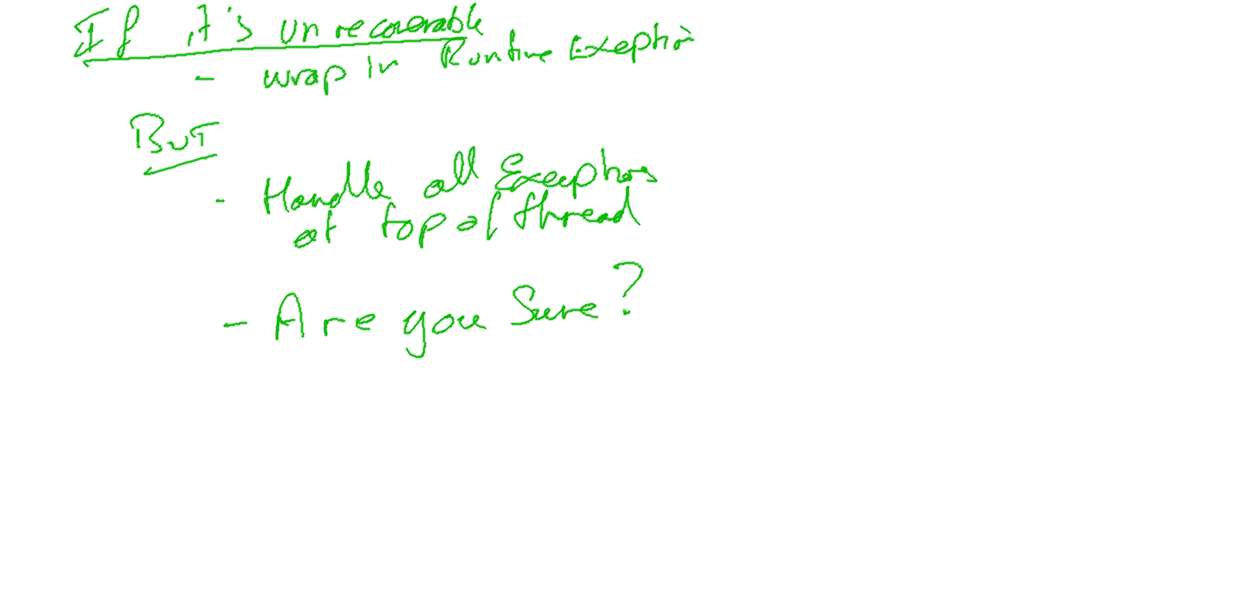 If it's unrecoverable
- wrap in Runtime Exception
BUT
- Handle all Exceptions
at top of thread
- Are you Sure?